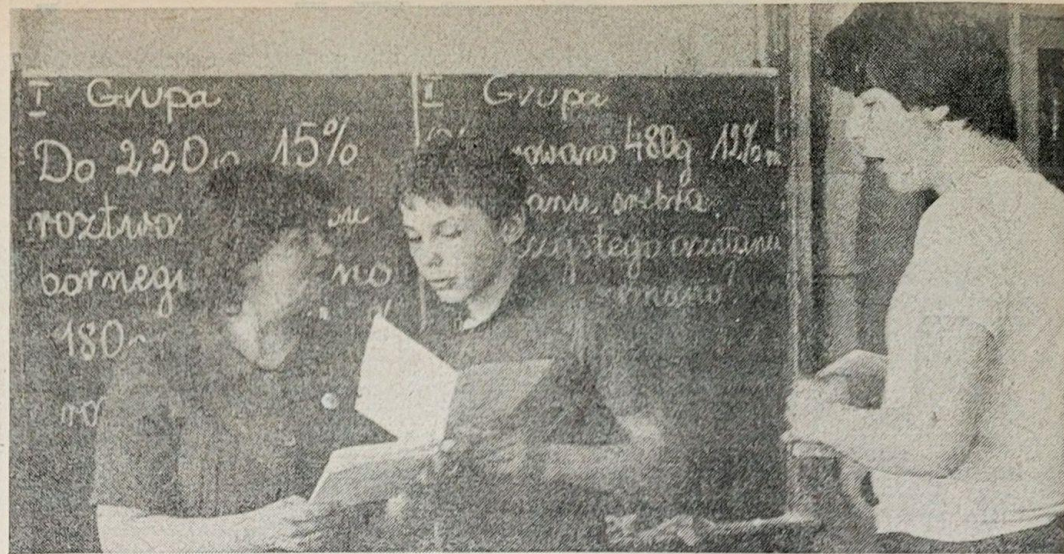 I Grupa
Do 220 15%
roztwo
bornego no
180
ro
I Grupa
owano 480g 12%
anu srebra.
czystego azotanu
mano